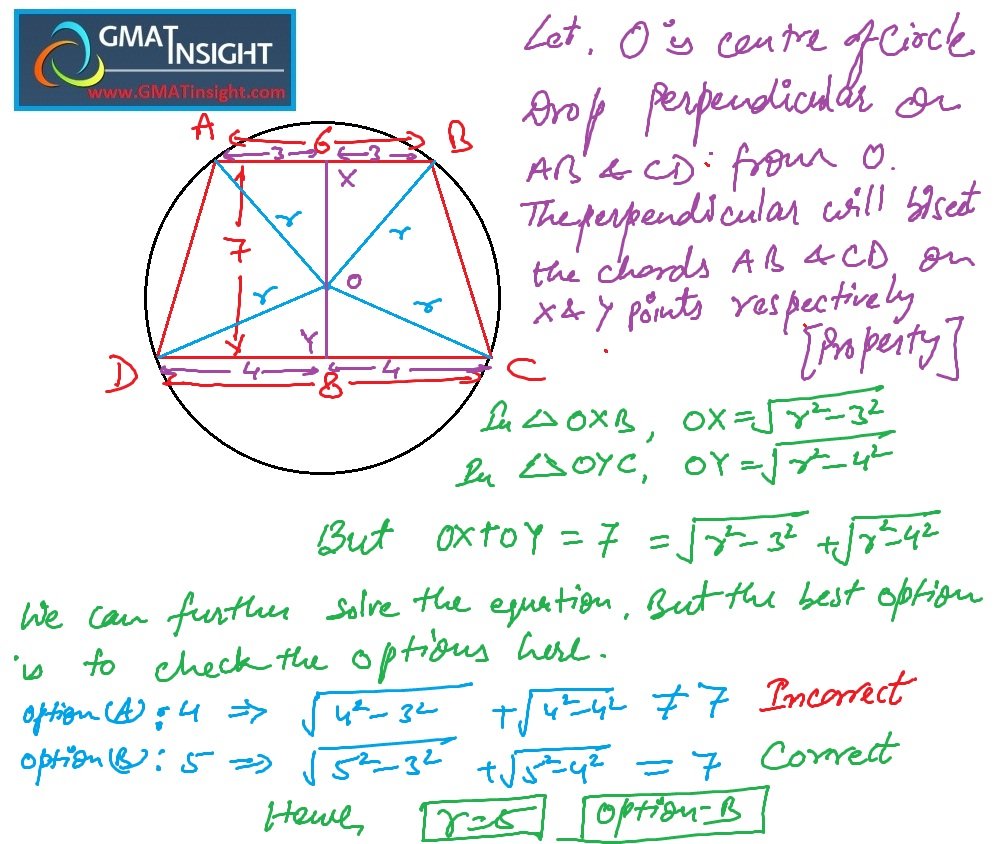 GMAT INSIGHT
www.GMATinsight.com
Let, O is centre of Circle
Drop perpendicular on
AB & CD from O.
The perpendicular will bisect
the chords AB & CD on
X & Y points respectively
[Property]
A 6 B
3 3
X
7
r r
O
r r
Y
D 4 4 C
8
In △OXB, OX = √r²-3²
In △OYC, OY = √r²-4²
But OX+OY = 7 = √r²-3² + √r²-4²
We can further solve the equation, But the best option
is to check the options here.
option(A): 4 ⇒ √4²-3² + √4²-4² ≠ 7 Incorrect
option(B): 5 ⇒ √5²-3² + √5²-4² = 7 Correct
Hence, r=5 Option-B